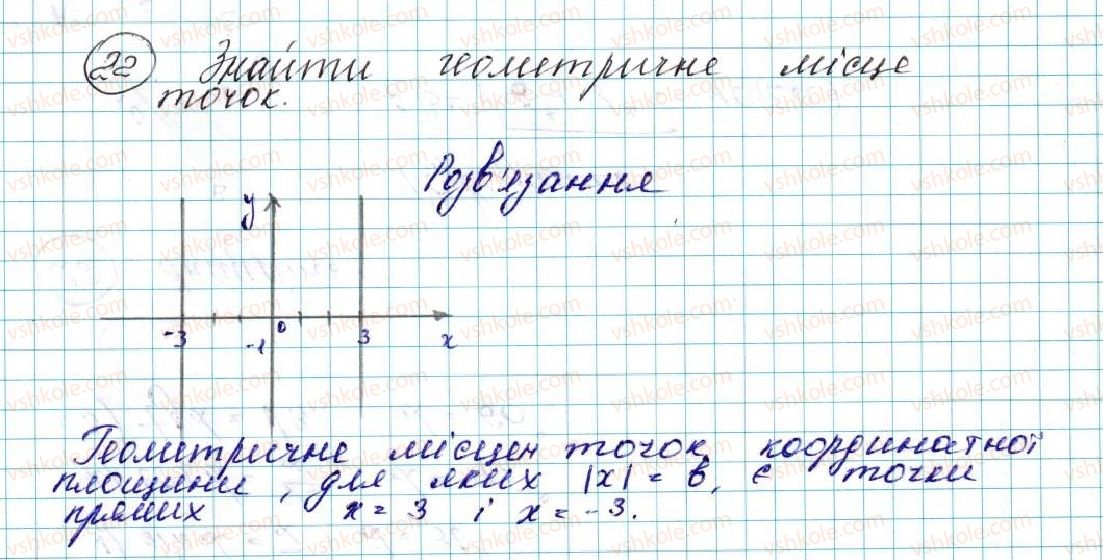 22 Знайти геометричне місце
точок.
Розв'язання
y
-3 -1 0 3 x
Геометричне місцем точок координатної
площини, для яких |x| = 6, є точки
прямих x = 3 і x = -3.
vshkole.com